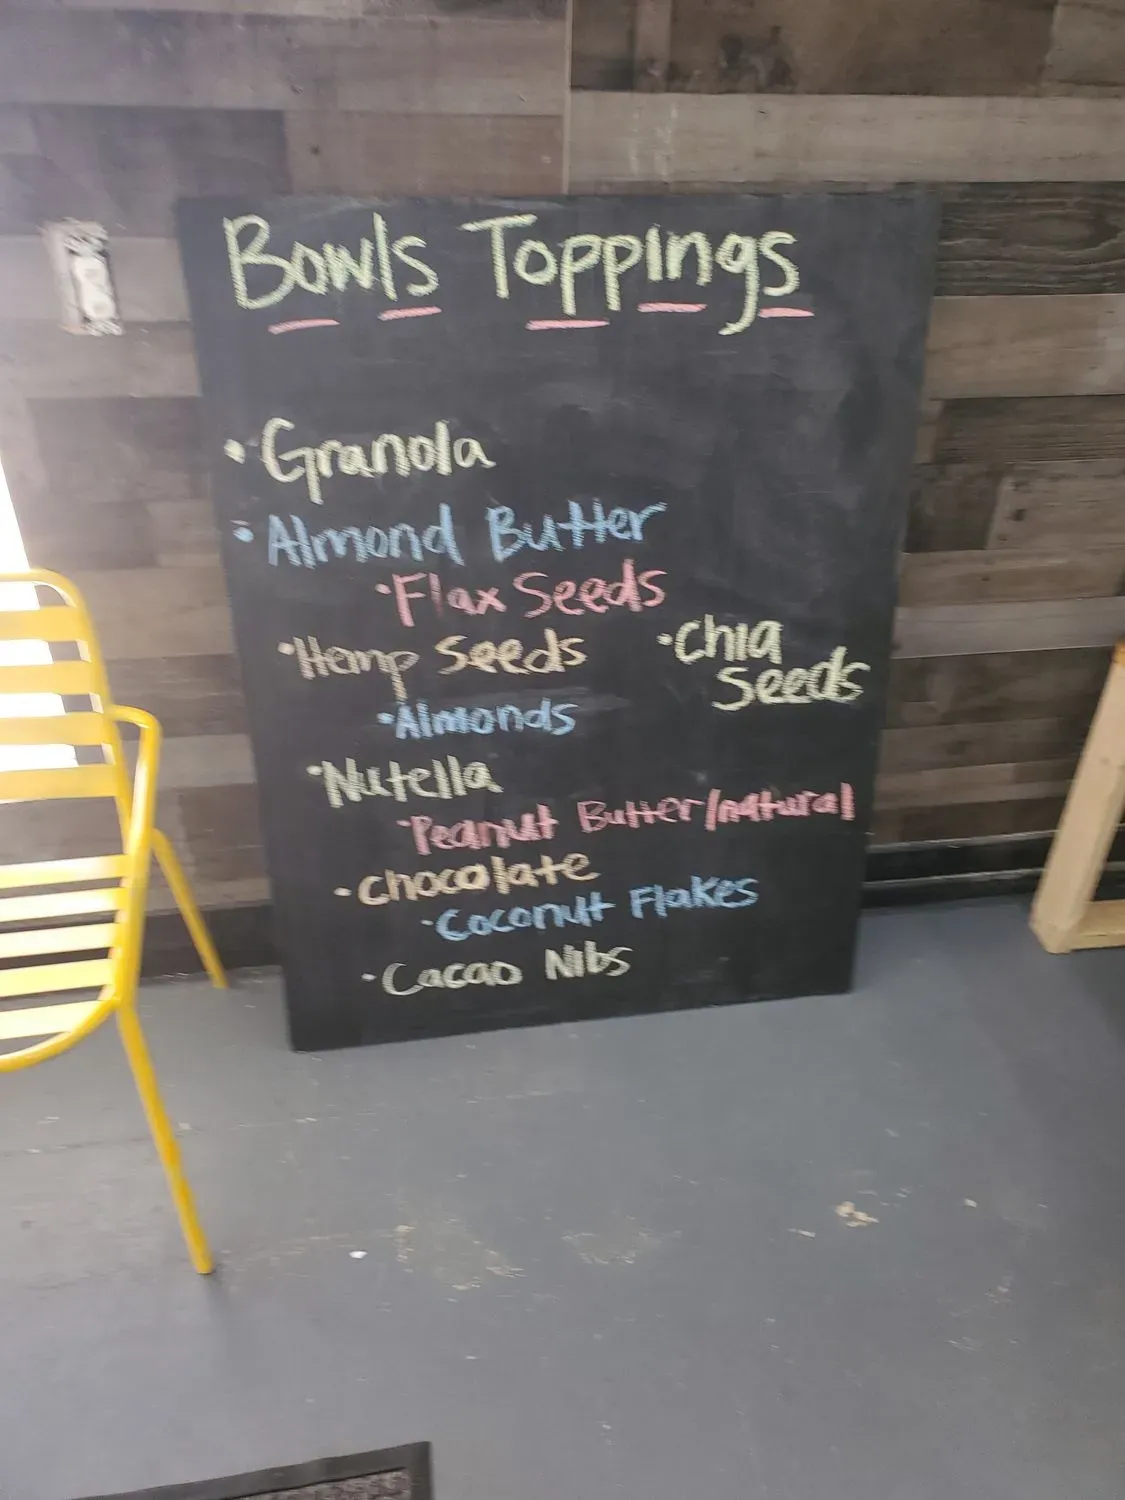 Bowls Toppings
• Granola
• Almond Butter
• Flax Seeds
• Hemp Seeds
• Chia
Seeds
• Almonds
• Nutella
• Peanut Butter/natural
• chocolate
• Coconut Flakes
• Cacao Nibs